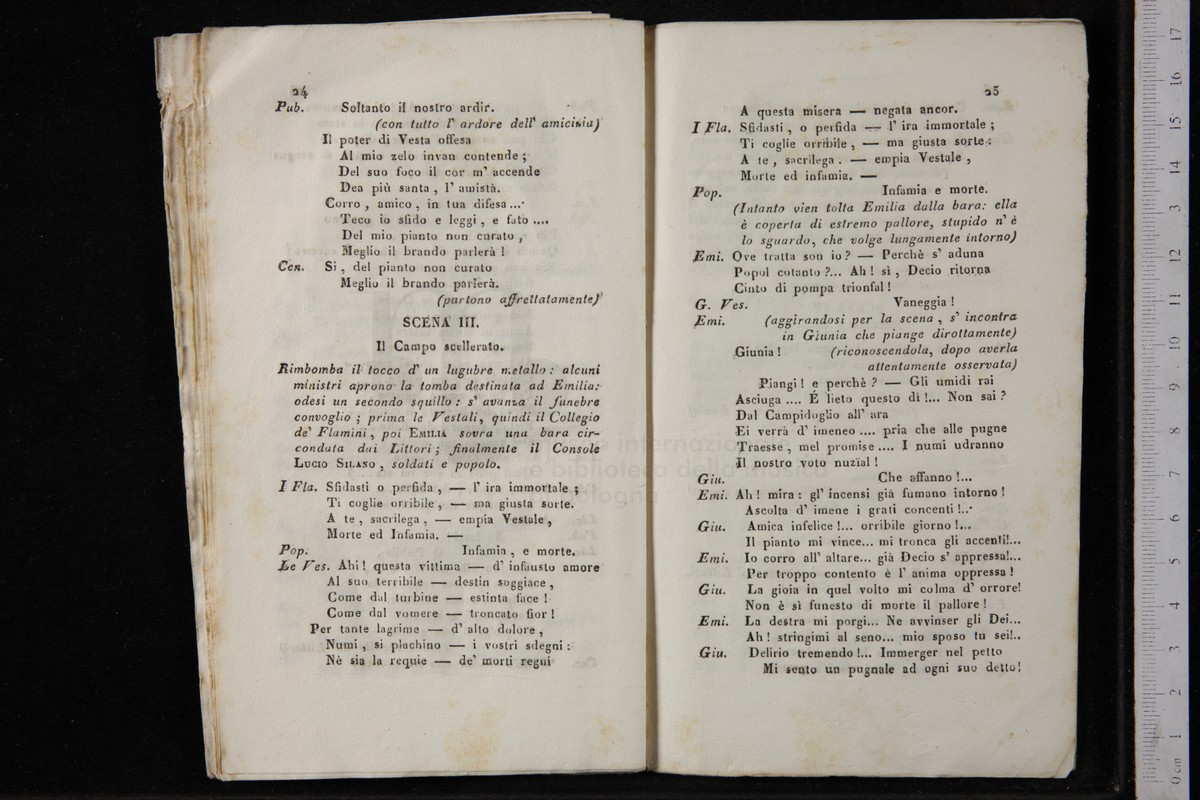 24
Pub. Soltanto il nostro ardir.
(con tutto l' ardore dell' amicizia)
Il poter di Vesta offesa
Al mio zelo invan contende ;
Del suo foco il cor m' accende
Dea più santa , l' amistà.
Corro , amico , in tua difesa ...
Teco io sfido e leggi , e fato ....
Del mio pianto non curato ,
Meglio il brando parlerà !
Cen. Si , del pianto non curato
Meglio il brando parlerà.
(partono affrettatamente)
SCENA III.
Il Campo scellerato.
Rimbomba il tocco d' un lugubre metallo : alcuni
ministri aprono la tomba destinata ad Emilia:
odesi un secondo squillo : s' avanza il funebre
convoglio ; prima le Vestali, quindi il Collegio
de' Flamini , poi EMILIA sovra una bara cir-
condata dai Littori ; finalmente il Console
LUCIO SILANO , soldati e popolo.
I Fla. Sfidasti o perfida , — l' ira immortale ;
Ti coglie orribile , — ma giusta sorte.
A te , sacrilega , — empia Vestale ,
Morte ed Infamia. —
Pop. Infamia , e morte.
Le Ves. Ahi ! questa vittima — d' infausto amore
Al suo terribile — destin soggiace ,
Come dal turbine — estinta face !
Come dal vomere — troncato fior !
Per tante lagrime — d' alto dolore ,
Numi , si plachino — i vostri sdegni :
Nè sia la requie — de' morti regni
25
A questa misera — negata ancor.
I Fla. Sfidasti , o perfida — l' ira immortale ;
Ti coglie orribile , — ma giusta sorte :
A te , sacrilega . — empia Vestale ,
Morte ed infamia. —
Pop. Infamia e morte.
(Intanto vien tolta Emilia dalla bara: ella
è coperta di estremo pallore, stupido n' è
lo sguardo, che volge lungamente intorno)
Emi. Ove tratta son io ? — Perchè s' aduna
Popol cotanto ?... Ah ! sì , Decio ritorna
Cinto di pompa trionfal !
G. Ves. Vaneggia !
Emi. (aggirandosi per la scena , s' incontra
in Giunia che piange dirottamente)
Giunia ! (riconoscendola, dopo averla
attentamente osservata)
Piangi ! e perchè ? — Gli umidi rai
Asciuga .... É lieto questo dì !... Non sai ?
Dal Campidoglio all' ara
Ei verrà d' imeneo .... pria che alle pugne
Traesse , mel promise .... I numi udranno
Il nostro voto nuzïal !
Giu. Che affanno !...
Emi. Ah ! mira : gl' incensi già fumano intorno !
Ascolta d' imene i grati concenti !...
Giu. Amica infelice !... orribile giorno !...
Il pianto mi vince... mi tronca gli accenti!...
Emi. Io corro all' altare... già Decio s' appressa!...
Per troppo contento è l' anima oppressa !
Giu. La gioia in quel volto mi colma d' orrore!
Non è sì funesto di morte il pallore !
Emi. La destra mi porgi... Ne avvinser gli Dei...
Ah ! stringimi al seno... mio sposo tu sei!..
Giu. Delirio tremendo !... Immerger nel petto
Mi sento un pugnale ad ogni suo detto!